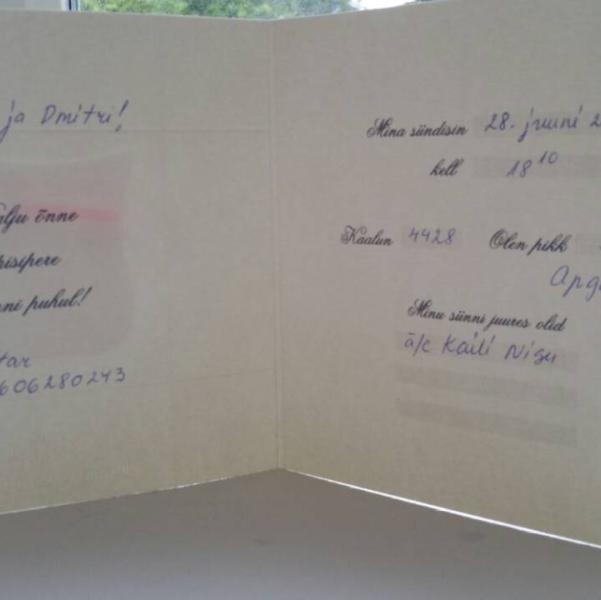 ja Dmitri!
õnne
puhul!
606280243
Mina sündisin 28. juuni 2
kell 18 10
Kaalun 4428 Olen pikk
Apg
Minu sünni juures olid
ä/e Kaili Nigu